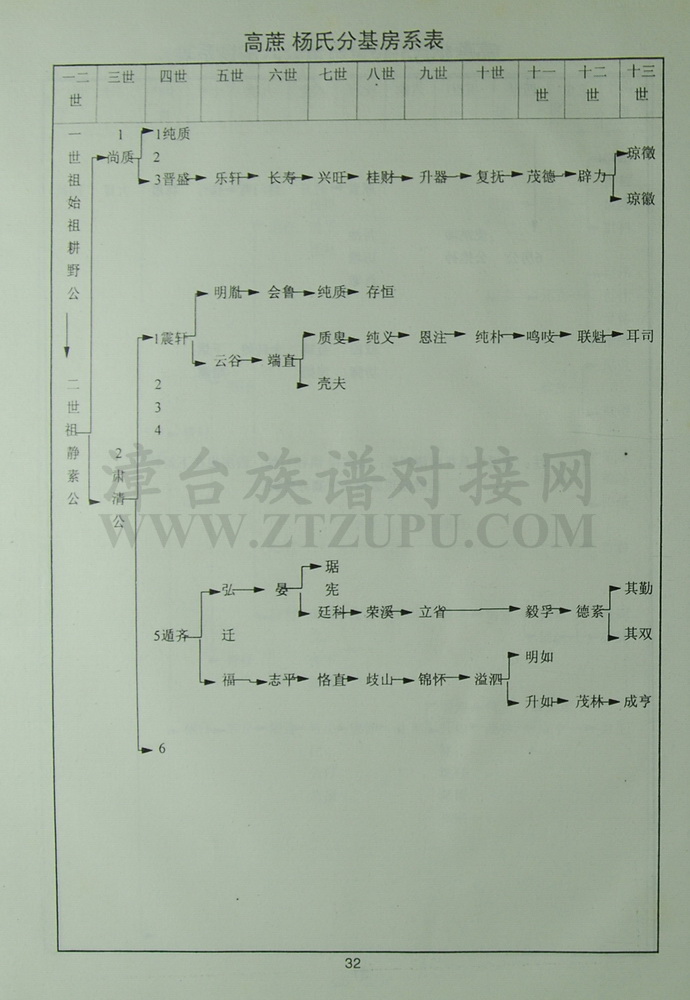 高蔗 杨氏分基房系表
一二世 三世 四世 五世 六世 七世 八世 九世 十世 十一世 十二世 十三世
一世祖始祖耕野公
二世祖静素公
1 尚质
1纯质
2
3晋盛 乐轩 长寿 兴旺 桂财 升器 复抚 茂德 辟力
琼徵
琼徽
2 肃清公
1震轩
明胤 会鲁 纯质 存恒
云谷 端直
质叟 纯义 恩注 纯朴 鸣吱 联魁 耳司
壳夫
2
3
4
5遁齐
弘 晏
琚
宪
廷科 荣溪 立省 毅孚 德素
其勤
其双
迁
福 志平 恪直 歧山 锦怀 溢泗
明如
升如 茂林 成亨
6
漳台族谱对接网
WWW.ZTZUPU.COM
32